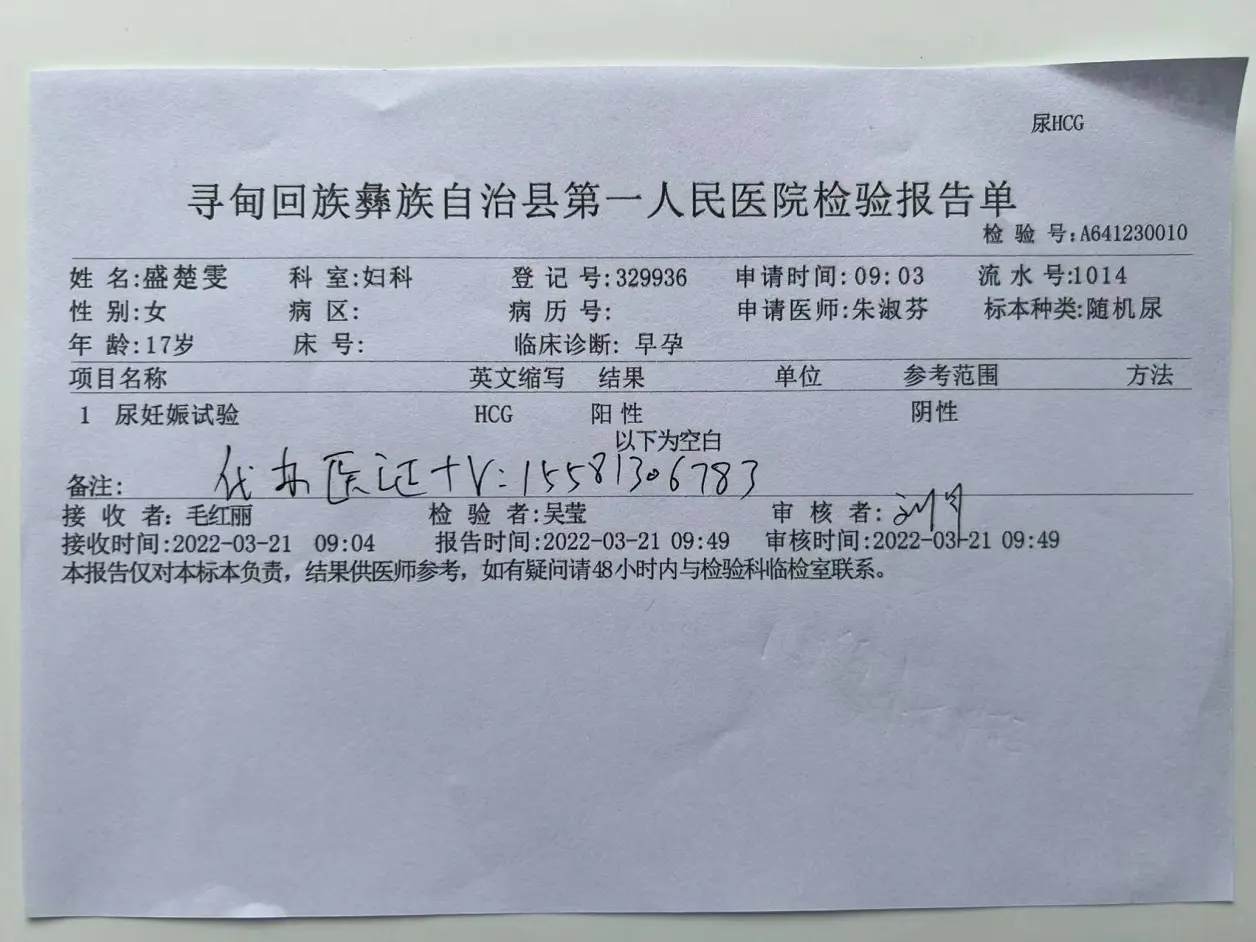 尿HCG
寻甸回族彝族自治县第一人民医院检验报告单
检 验 号:A641230010
姓 名:盛楚雯 科 室:妇科 登 记 号:329936 申请时间:09:03 流 水 号:1014
性 别:女 病 区: 病 历 号: 申请医师:朱淑芬 标本种类:随机尿
年 龄:17岁 床 号: 临床诊断: 早孕
项目名称 英文缩写 结果 单位 参考范围 方法
1 尿妊娠试验 HCG 阳性 阴性
以下为空白
备注: 代办医证+V:15581306783
接 收 者: 毛红丽 检 验 者:吴莹 审 核 者:
接收时间:2022-03-21 09:04 报告时间:2022-03-21 09:49 审核时间:2022-03-21 09:49
本报告仅对本标本负责，结果供医师参考，如有疑问请48小时内与检验科临检室联系。